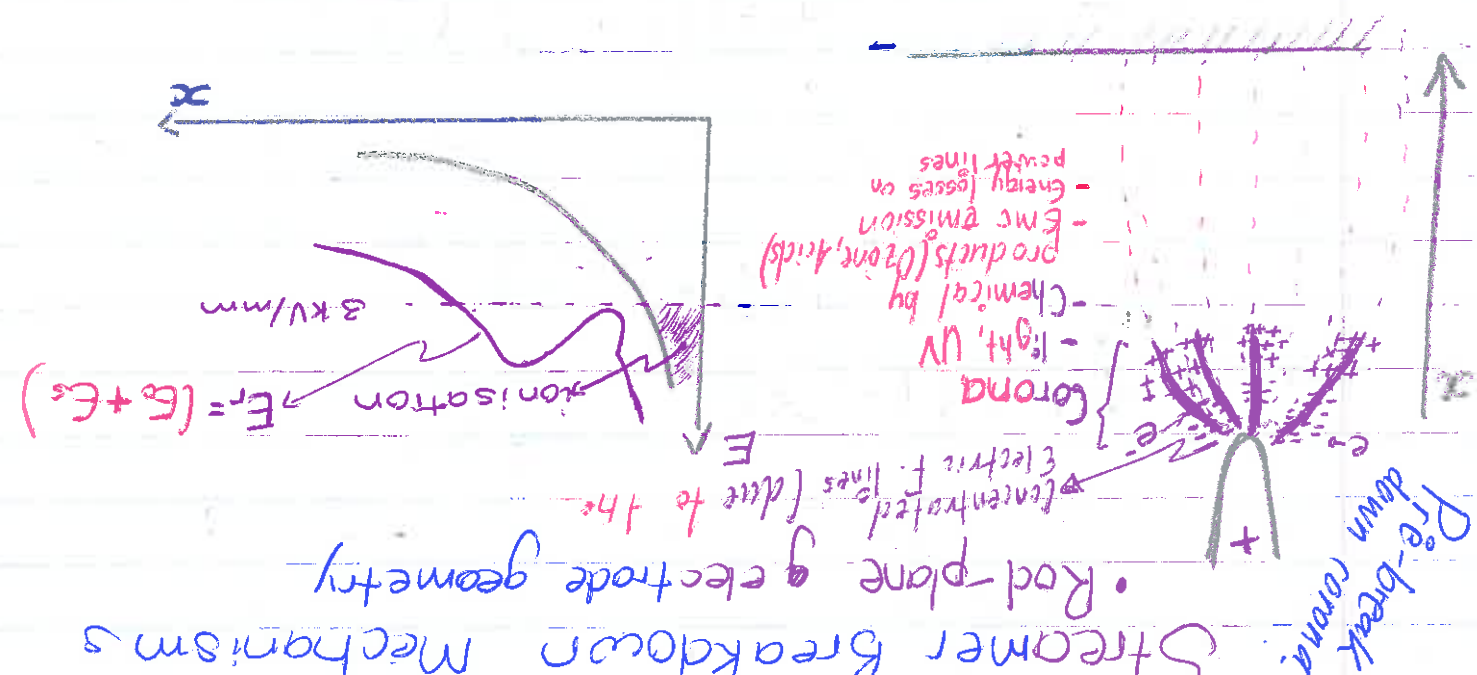 Streamer Breakdown Mechanisms
• Rod-plane electrode geometry
Pre-break
down corona.
+
Concentrated
Electric f. lines (due to the
e-
e-
Corona
- light, UV
- Chemical by
products (Ozone, Acids)
- Emc emission
- Energy losses on
power lines
x
-
E
ionisation
Er = (Eo + Es)
3 kV/mm
x